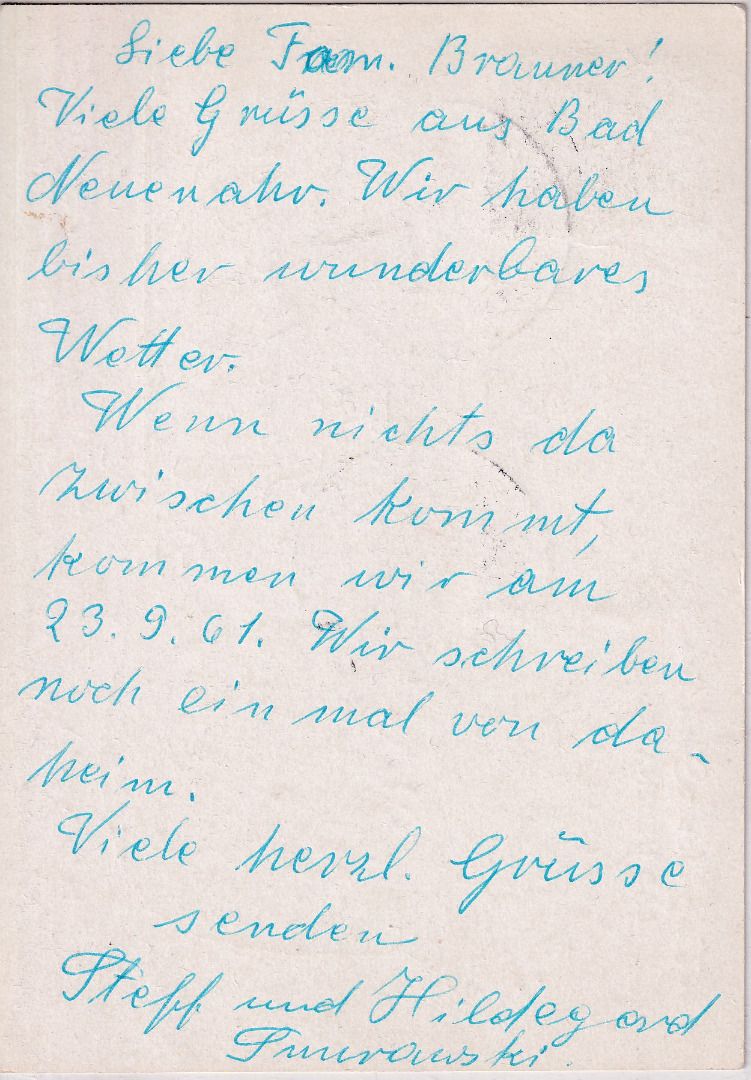 Liebe Fam. Brauner!
Viele Grüsse aus Bad
Neuenahr. Wir haben
bisher wunderbares
Wetter.
Wenn nichts da
zwischen kommt,
kommen wir am
23.9.61. Wir schreiben
noch ein mal von da-
heim.
Viele herzl. Grüsse
senden
Steff und Hildegard